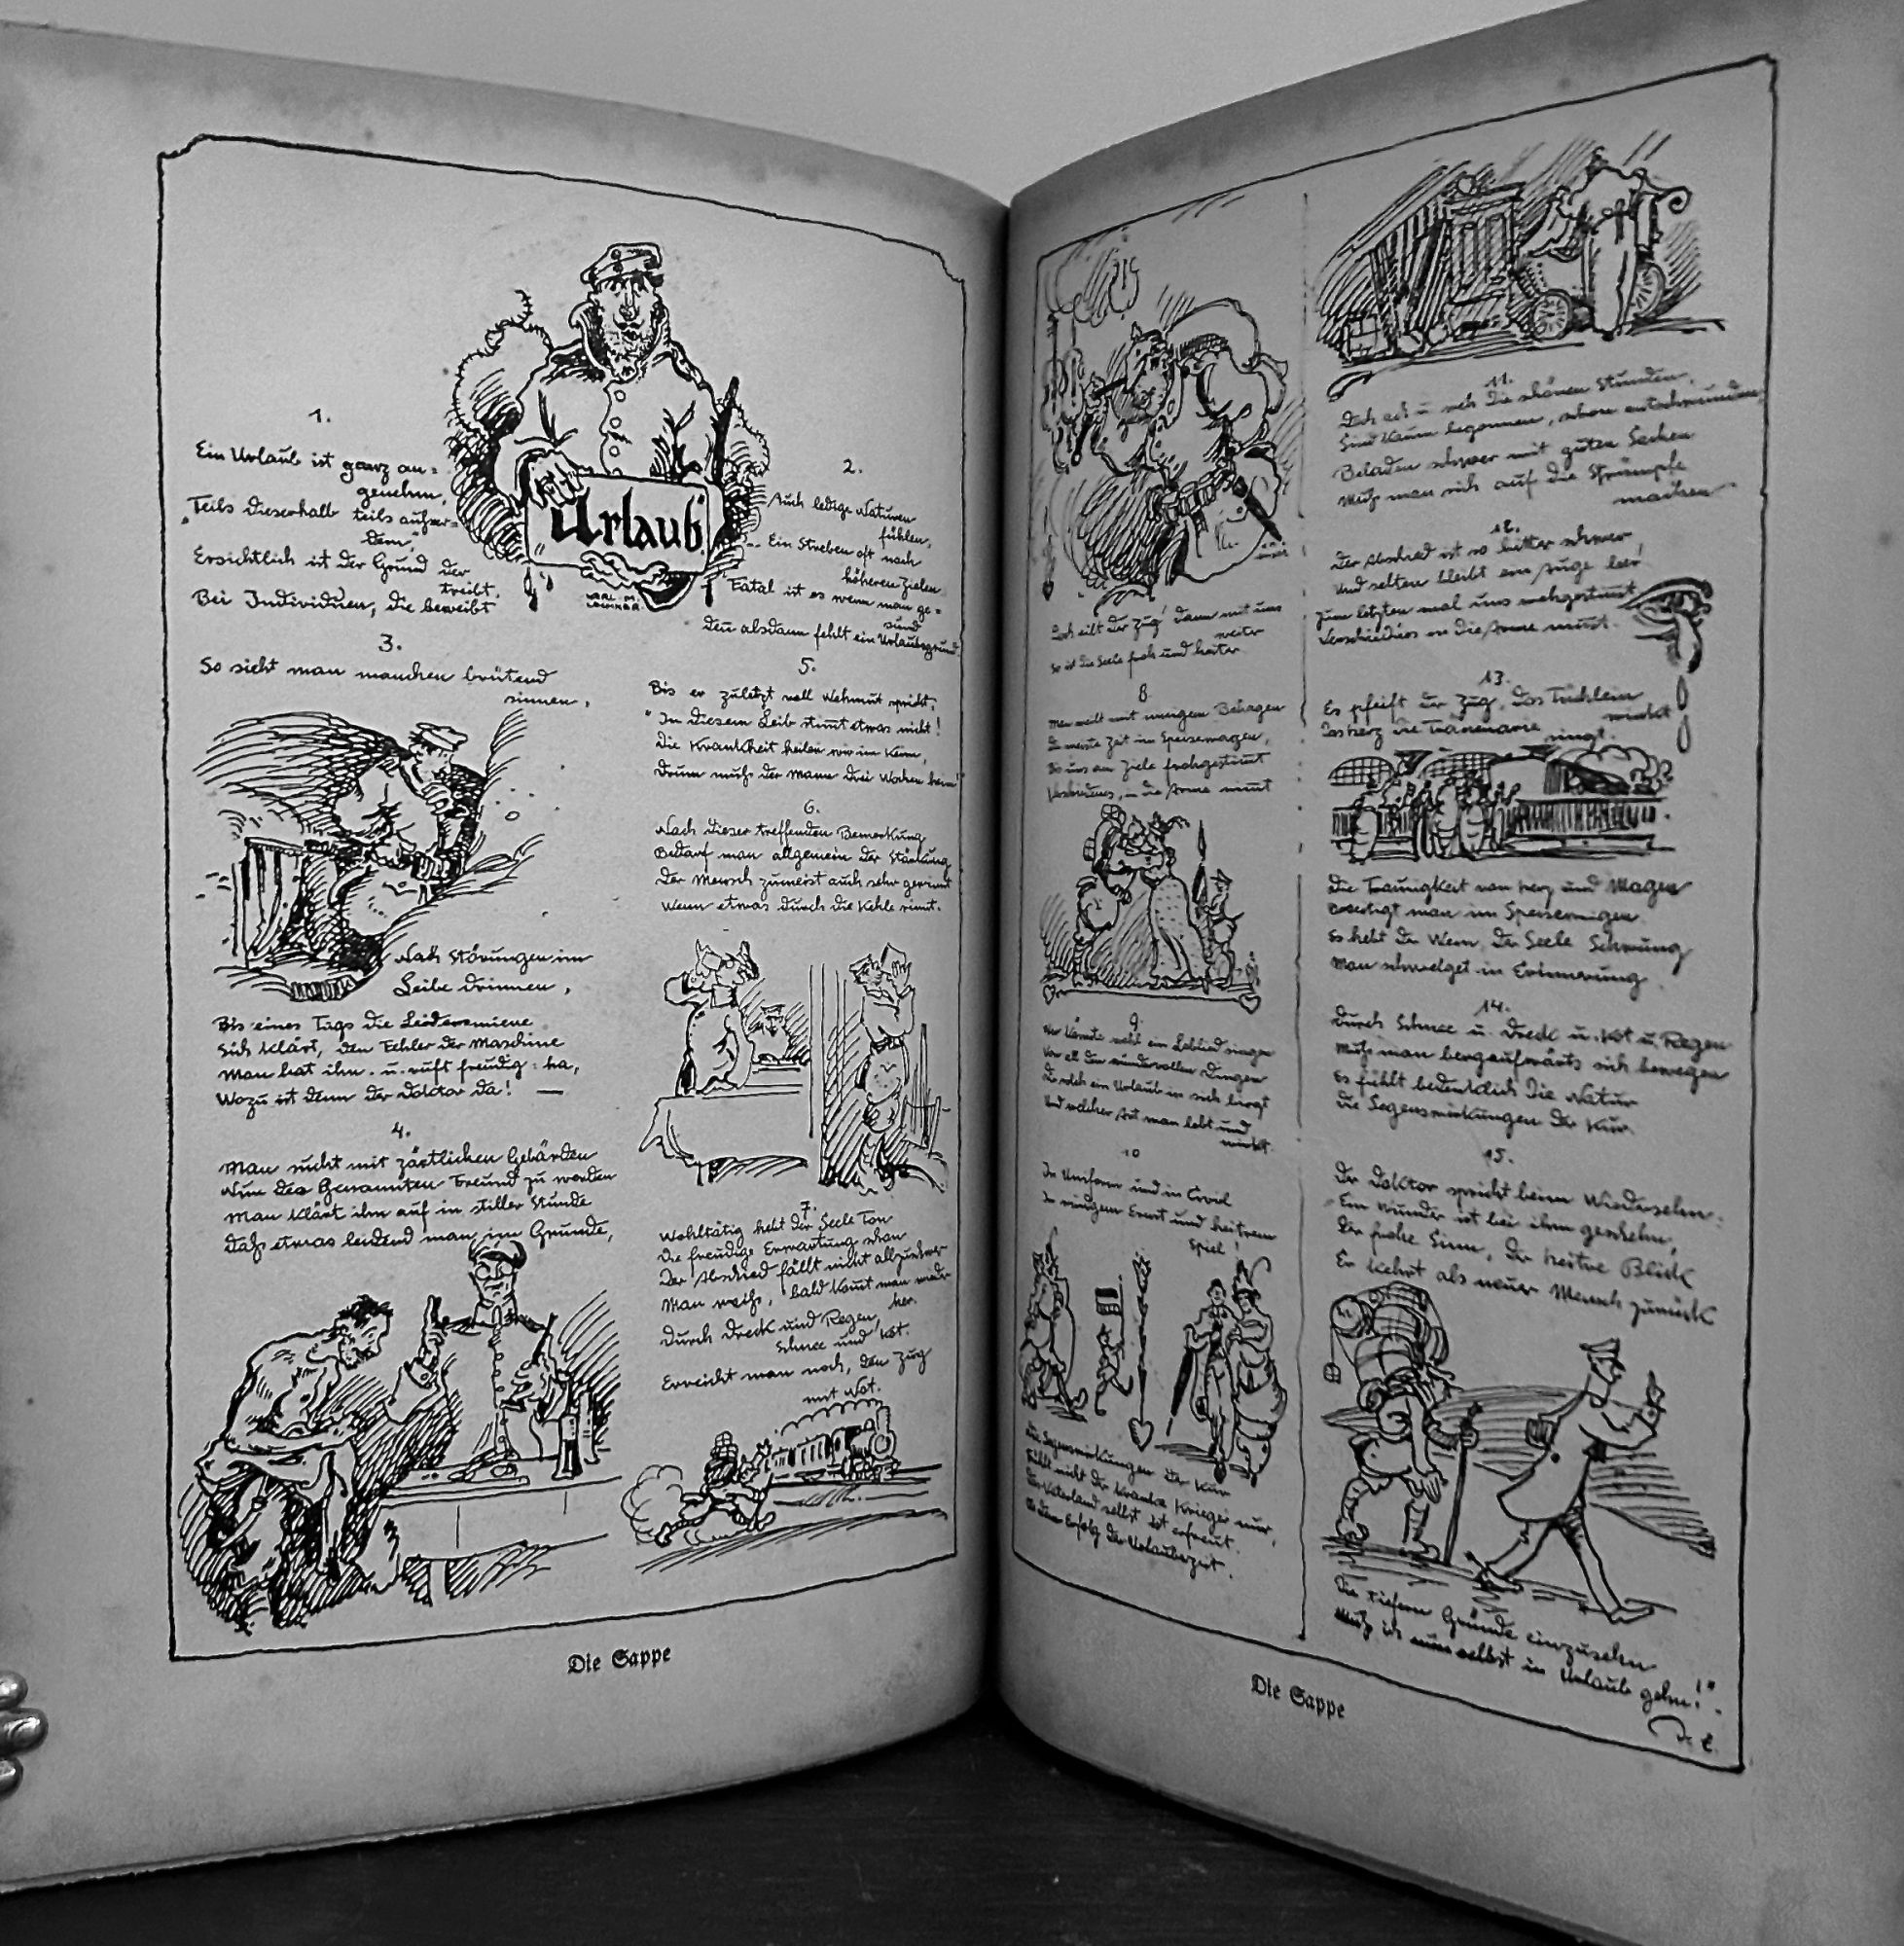 „Urlaub“
KARL M. LECHNER.
1.
Ein Urlaub ist ganz an=
genehm,
„Teils dieserhalb teils außer=
dem“
Ersichtlich ist der Grund der
treibt.
Bei Individuen, die beweibt
2.
Auch ledige Naturen
fühlen,
Ein Streben oft nach
höheren Zielen
Fatal ist es wenn man ge=
sund
Den alsdann fehlt ein Urlaubsgrund.
3.
So sieht man manchen brütend
sinnen,
Nach Störungen im
Leibe drinnen,
Bis eines Tags die Leidensmiene
Sich klärt, den Fehler der Maschine
Man hat ihn u. ruft freudig: ha,
Wozu ist denn der Doktor da! —
4.
Man sucht mit zärtlichen Gebärden
Nun des Genannten Freund zu werden
Man klärt ihn auf in stiller Stunde
Daß etwas leidend man im Grunde,
5.
Bis er zuletzt voll Wehmut spricht,
"In diesem Leib stimt etwas nicht!
Die Krankheit heilen wir im Keim,
Drum muß der Mann drei Wochen heim!"
6.
Nach dieser treffenden Bemerkung
Bedarf man allgemein der Stärkung
Der Mensch zumeist auch sehr gewinnt
Wenn etwas durch die Kehle rinnt.
7.
Wohltätig hebt der Seele Ton
Die freudige Erwartung schon
Der Abschied fällt nicht allzuschwer
Man weiß, bald komt man wieder
her.
Durch Dreck und Regen,
Schnee und Kot.
Erreicht man noch, den Zug
mit Not.
Die Sappe
Doch eilt der Zug dann mit uns
weiter
So ist die Seele froh und heiter
8.
Man weilt mit innigem Behagen
Die meiste Zeit im Speisewagen,
Bis uns am Ziele frohgestimt
Verschiednes, in die Arme nimt
9.
Wer könnte wohl ein Loblied singen
Von all den wundervollen Dingen
Die solch ein Urlaub in sich birgt
Und welcher Art man lebt und
wirkt.
10
In Uniform und in Civil
In einigem Ernst und heitrem
Spiel!
Die Segenswirkungen der Kur
Fühlt nicht der kranke Krieger nur,
Das Vaterland selbst ist erfreut.
Ob dem Erfolg der Urlaubszeit.
11.
Doch ach u. weh die schönen Stunden,
Sind kaum begonnen, schon entschwunden,
Beladen schwer mit guten Sachen
Muß man sich auf die Strümpfe
machen
12.
Der Abschied ist so bitter schwer,
Und selten bleibt ein Auge leer!
Zum letzten mal uns wehgestimt
Verschiednes in die Arme nimt.
13.
Es pfeift der Zug, das Tüchlein
winkt
Das Herz die Tränenarie singt.
Die Traurigkeit von Herz und Magen
Beseitigt man im Speisewagen.
Es hebt der Wein, der Seele Schwung
Man schwelget in Erinnerung.
14.
Durch Schnee u. Dreck u. Kot u. Regen
Muß man bergaufwärts sich bewegen
Es fühlt bedenklich die Natur
Die Segenswirkungen der Kur.
15.
Der Doktor spricht beim Wiedersehn:
„Ein Wunder ist bei ihm geschehn,
Der frohe Sinn, der heitre Blick
Er kehrt als neuer Mensch zurück
Die tiefern Gründe einzusehn
Muß ich nun selbst in Urlaub gehn!“
Die Sappe